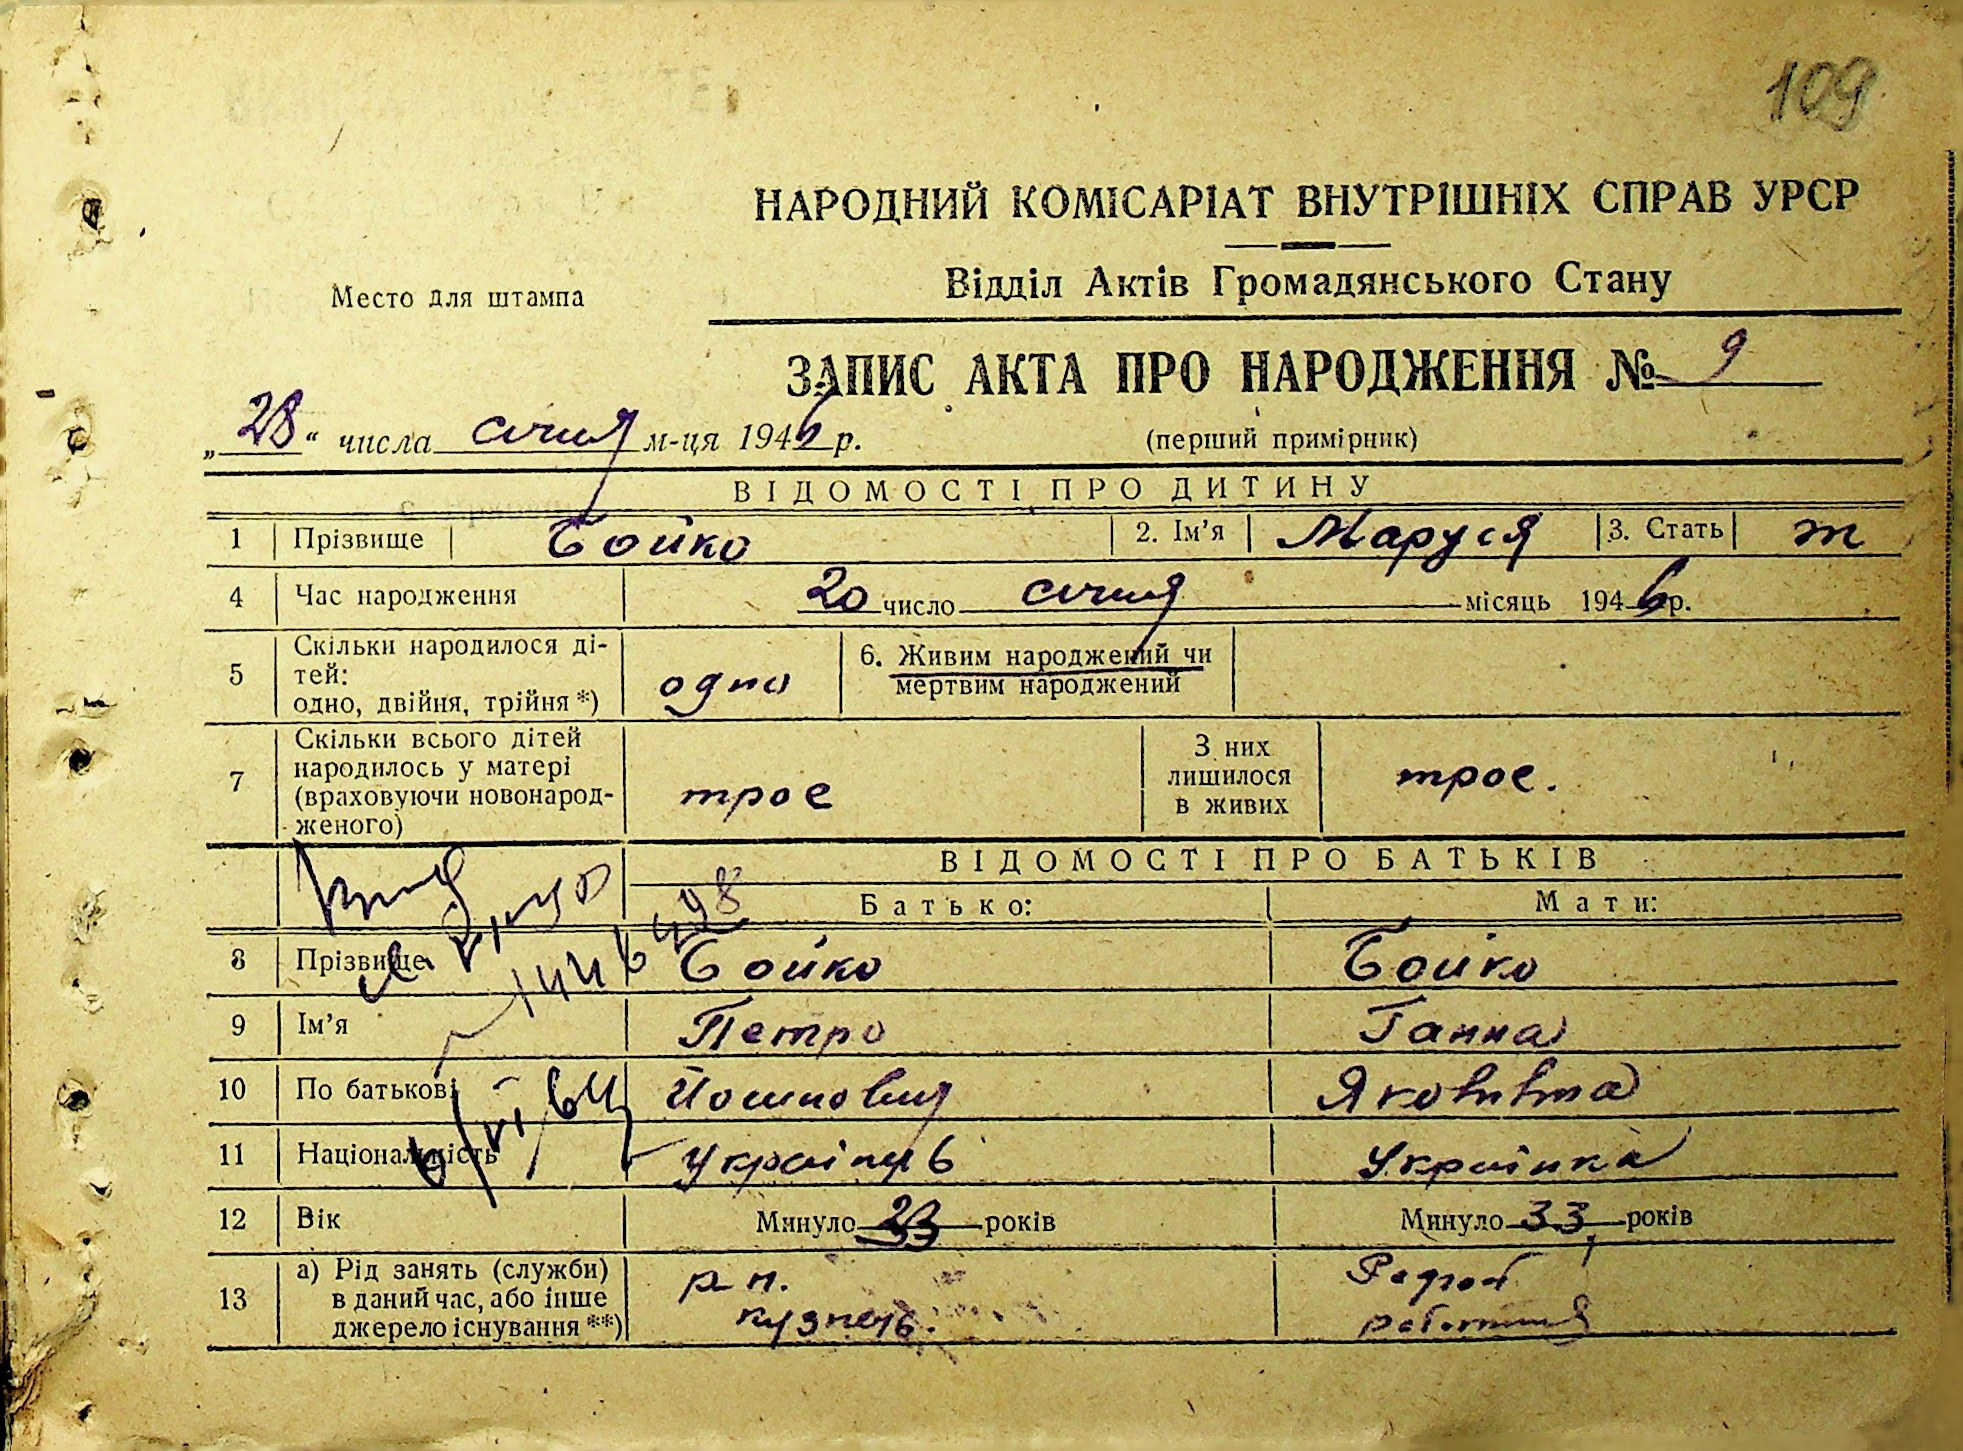 109
НАРОДНИЙ КОМІСАРІАТ ВНУТРІШНІХ СПРАВ УРСР
Відділ Актів Громадянського Стану
Место для штампа
ЗАПИС АКТА ПРО НАРОДЖЕННЯ № 9
„28“ числа січня м-ця 1946 р.
(перший примірник)
ВІДОМОСТІ ПРО ДИТИНУ
1 Прізвище Бойко 2. Ім'я Маруся 3. Стать ж
4 Час народження 20 число січня місяць 1946 р.
5 Скільки народилося ді-
тей:
одно, двійня, трійня *) одно
6. Живим народжений чи
мертвим народжений
7 Скільки всього дітей
народилось у матері
(враховуючи новонарод-
женого) троє
З них
лишилося
в живих троє.
ВІДОМОСТІ ПРО БАТЬКІВ
Батько: Мати:
8 Прізвище Бойко Бойко
9 Ім'я Петро Ганна
10 По батькові Яковівна
11 Національність Українець Українка
12 Вік Минуло 33 років Минуло 33 років
13 а) Рід занять (служби)
в даний час, або інше
джерело існування **)
р п.
кузнець.